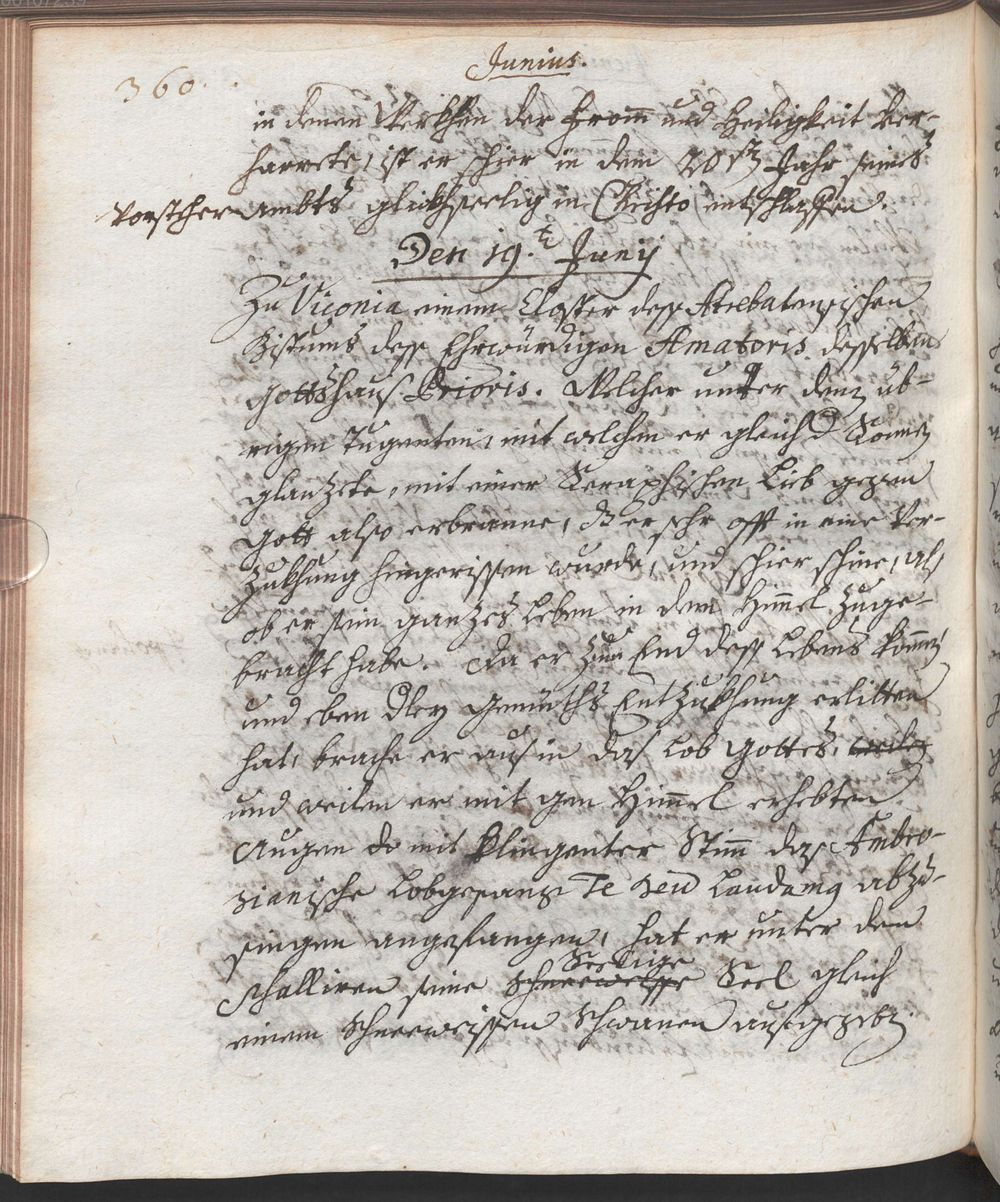 Junius.
360.
in denen Werkhen der Fromm und Heiligkeit ver-
harrete, ist er schier in dem 20 st Jahr seines
Vorsteher Ambts glickhseelig in Christo entschlaffen.
Den 19.t Junij
Zu Viconia einem Closter dess Atrebatensischen
Bistums dess Ehrwürdigen Amatoris desselben
Gottshauß Prioris. Welcher unter denen üb-
rigen Tugenten, mit welchen er gleich d Sonnen
glantzete, mit einer Seraphischen Lieb gegen
Gott also erbranne, dz er sehr offt in eine Ver-
zukhung hingerissen wurde, und schier schine, als
ob er sein ganzes Leben in dem Himmel zuge-
bracht habe. Da er zum End dess Lebens kommen
und eben Gemüths Entzukhung erlitten
hat, brache er auß in das Lob Gottes,
und weilen er mit gen Himmel erhebten
Augen do mit klingenter Stimm das Ambro-
sianische Lobgesang Te Deu Laudamus abzu-
singen angefangen, hat er unter dem
Seelige
schalliren seine Schneeweisse Seel gleich
einem Schneeweissen Schwanen aufgegeben.